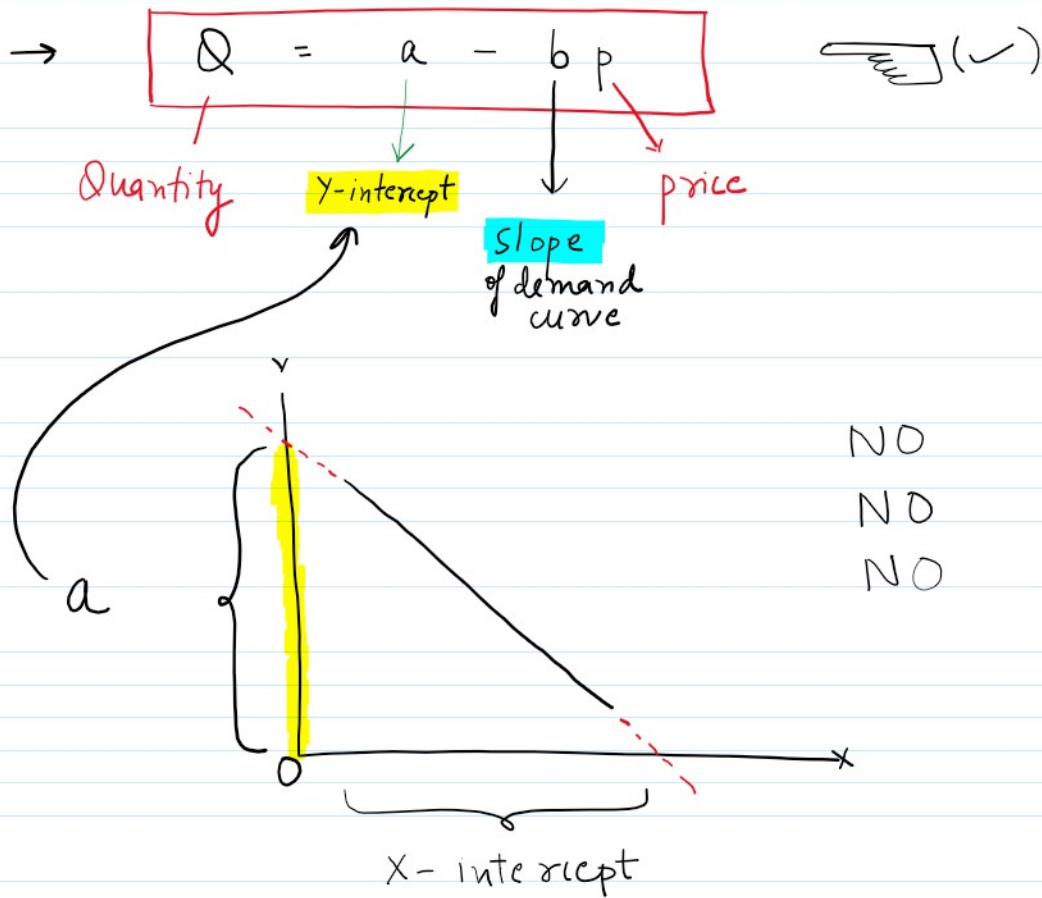 → Q = a - bp (✓)
Quantity
Y-intercept
price
slope
of demand
curve
Y
NO
NO
NO
a
O
X
X- intercept